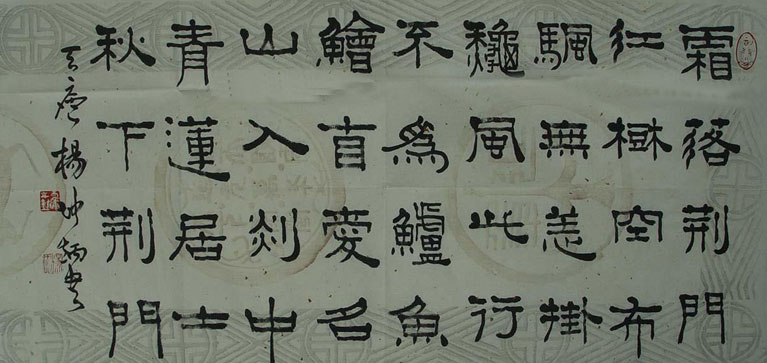 霜落荆門
江樹空布
颿無恙掛
龝風此行
不為鱸魚
鱠自愛名
山入剡中
青蓮居士
秋下荆門
楊坤炳書